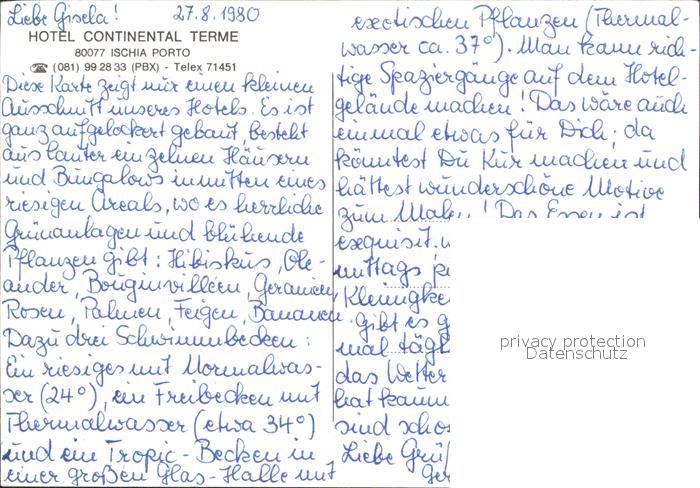 Liebe Gisela! 27.8.1980
HOTEL CONTINENTAL TERME
80077 ISCHIA PORTO
☎ (081) 99 28 33 (PBX) - Telex 71451
Diese Karte zeigt nur einen kleinen
Ausschnitt unseres Hotels. Es ist
ganz aufgelockert gebaut, besteht
aus lauter einzelnen Häusern
und Bungalows inmitten eines
riesigen Areals, wo es herrliche
Grünanlagen und blühende
Pflanzen gibt: Hibiskus, Ole-
ander, Bouginvilleen, Geranien,
Rosen, Palmen, Feigen, Bananen.
Dazu drei Schwimmbecken:
Ein riesiges mit Normalwas-
ser (24°), ein Freibecken mit
Thermalwasser (etwa 34°)
und ein Tropic-Becken in
einer großen Glas-Halle mit
exotischen Pflanzen (Thermal-
wasser ca. 37°). Man kann rich-
tige Spaziergänge auf dem Hotel-
gelände machen! Das wäre auch
einmal etwas für Dich; da
könntest Du Kur machen und
hättest wunderschöne Motive
zum Malen! Das Essen ist
exquisit,
mittags
Kleinigke
gibt es g
mal tägl
das Wetter
hat kaum
sind scho
Liebe Grüß
Ger
privacy protection
Datenschutz